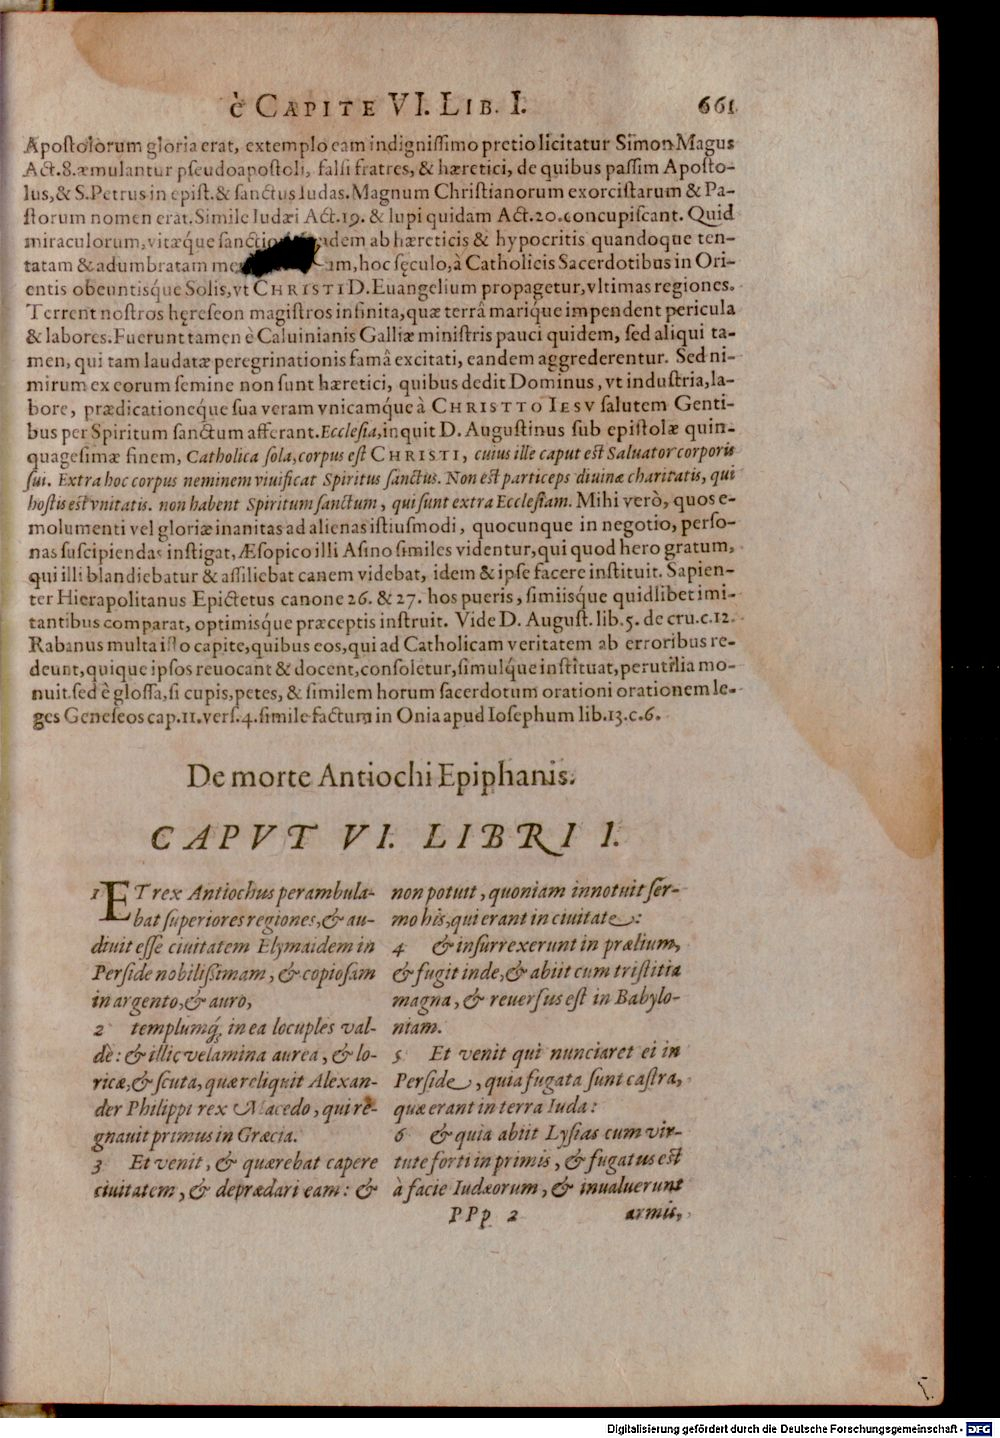 è CAPITE VI. LIB. I. 661
Apostolorum gloria erat, extemplo eam indignissimo pretio licitatur Simon Magus
Act. 8. æmulantur pseudoapostoli, falsi fratres, & hæretici, de quibus passim Aposto-
lus, & S. Petrus in epist. & sanctus Iudas. Magnum Christianorum exorcistarum & Pa-
storum nomen erat. Simile Iudæi Act. 19. & lupi quidam Act. 20. concupiscant. Quid
miraculorum, vitæque ab hæreticis & hypocritis quandoque ten-
tatam & adumbratam hoc sęculo, à Catholicis Sacerdotibus in Ori-
entis obeuntisq́ue Solis, vt CHRISTI D. Euangelium propagetur, vltimas regiones.
Terrent nostros hęreseon magistros infinita, quæ terrâ mariq́ue impendent pericula
& labores. Fuerunt tamen è Caluinianis Galliæ ministris pauci quidem, sed aliqui ta-
men, qui tam laudatæ peregrinationis famâ excitati, eandem aggrederentur. Sed ni-
mirum ex eorum semine non sunt hæretici, quibus dedit Dominus, vt industria, la-
bore, prædicationeq́ue sua veram vnicamq́ue à CHRISTTO IESV salutem Genti-
bus per Spiritum sanctum afferant. Ecclesia, inquit D. Augustinus sub epistolæ quin-
quagesimæ finem, Catholica sola, corpus est CHRISTI, cuius ille caput est Saluator corporis
sui. Extra hoc corpus neminem viuificat Spiritus sanctus. Non est particeps diuinæ charitatis, qui
hostis est vnitatis. non habent Spiritum sanctum, qui sunt extra Ecclesiam. Mihi verò, quos e-
molumenti vel gloriæ inanitas ad alienas istiusmodi, quocunque in negotio, perso-
nas suscipiendas instigat, Æsopico illi Asino similes videntur, qui quod hero gratum,
qui illi blandiebatur & assiliebat canem videbat, idem & ipse facere instituit. Sapien-
ter Hierapolitanus Epictetus canone 26. & 27. hos pueris, simiisq́ue quidlibet imi-
tantibus comparat, optimisque præceptis instruit. Vide D. August. lib. 5. de cru. c. 12.
Rabanus multa isto capite, quibus eos, qui ad Catholicam veritatem ab erroribus re-
deunt, quique ipsos reuocant & docent, consoletur, simulq́ue instituat, perutilia mo-
nuit. sed è glossa, si cupis, petes, & similem horum sacerdotum orationi orationem le-
ges Geneseos cap. 11. vers. 4. simile factum in Onia apud Iosephum lib. 13. c. 6.
De morte Antiochi Epiphanis.
CAPVT VI. LIBRI I.
1 ET rex Antiochus perambula-
bat superiores regiones, & au-
diuit esse ciuitatem Elymaidem in
Perside nobilissimam, & copiosam
in argento, & auro,
2 templumq́; in ea locuples val-
dè: & illic velamina aurea, & lo-
ricæ, & scuta, quæ reliquit Alexan-
der Philippi rex Macedo, qui re-
gnauit primus in Græcia.
3 Et venit, & quærebat capere
ciuitatem, & deprædari eam: &
non potuit, quoniam innotuit ser-
mo his, qui erant in ciuitate:
4 & insurrexerunt in prælium,
& fugit inde, & abiit cum tristitia
magna, & reuersus est in Babylo-
niam.
5 Et venit qui nunciaret ei in
Perside, quia fugata sunt castra,
quæ erant in terra Iuda:
6 & quia abiit Lysias cum vir-
tute forti in primis, & fugatus est
à facie Iudæorum, & inualuerunt
PPp 2 armis,
Digitalisierung gefördert durch die Deutsche Forschungsgemeinschaft - DFG